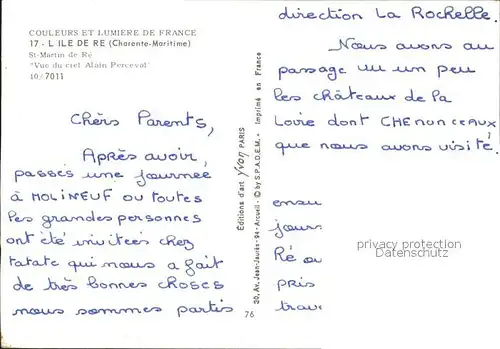 COULEURS ET LUMIERE DE FRANCE
17 - L'ILE DE RE (Charente-Maritime)
St-Martin de Ré
"Vue du ciel Alain Perceval"
10/7011
Chèrs Parents,
Après avoir,
passés une journée
à MOLINEUF où toutes
les grandes personnes
ont été invitées chez
tatate qui nous a fait
de très bonnes choses
nous sommes partis
Editions d'art yvon PARIS
30, Av. Jean-Jaurès - 94 - Arcueil - © by S.P.A.D.E.M. - Imprimé en France
76
direction La Rochelle.
Nous avons au
passage vu un peu
les châteaux de la
Loire dont CHENONCEAUX
que nous avons visité.
ensu
jour
Ré ou
pris
trav
privacy protection
Datenschutz